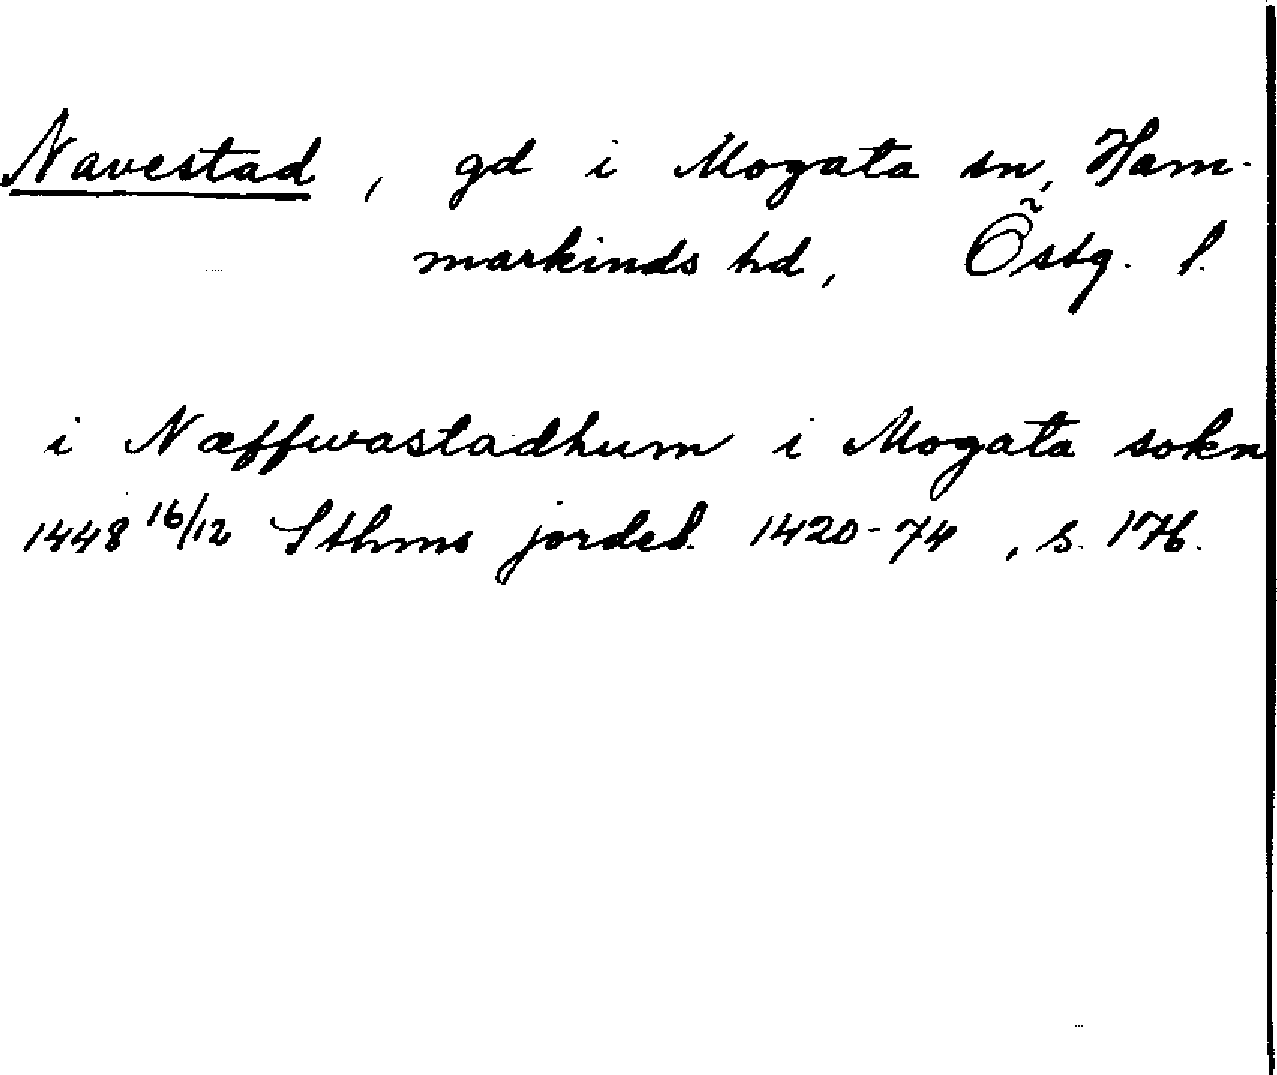 Navestad, gd i Mogata sn, Ham-
markinds hd, Östg. l.
i Næffwastadhum i Mogata sokn
1448 16/12 Sthms jordeb. 1420-74, s. 176.